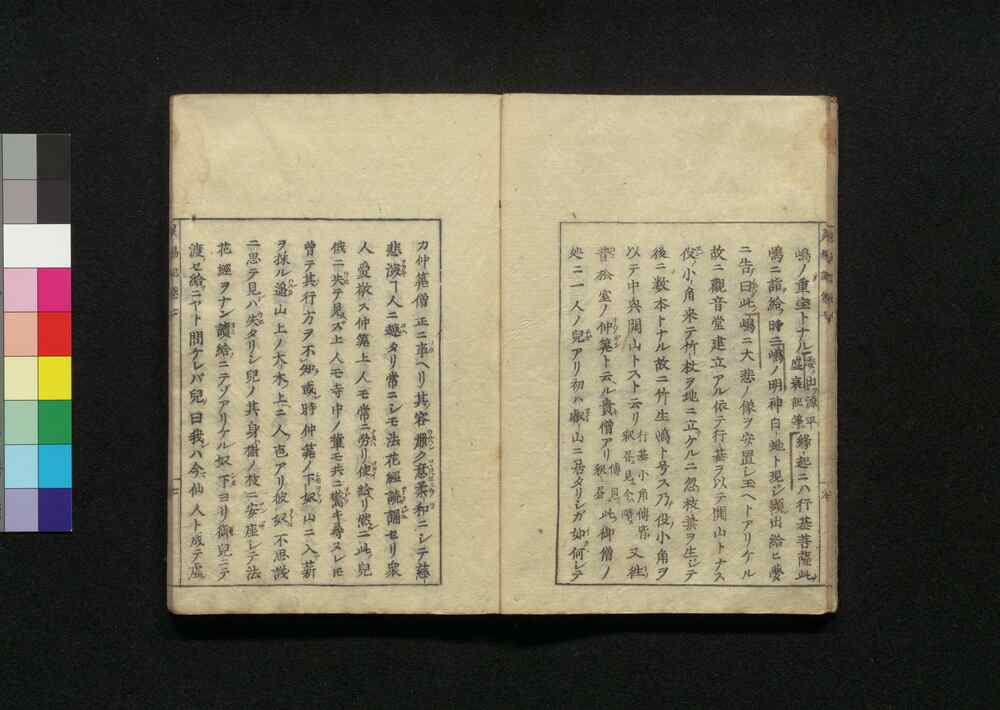 嶋ノ重宝トナル 出源平盛衰記等 縁起ニハ行基菩薩此
嶋ニ詣給時ニ嶋ノ明神白地ト現シ顕出給ヒ夢
ニ告曰此嶋ニ大悲ノ像ヲ安置シ玉ヘトアリケル
故ニ観音堂建立アル依テ行基ヲ以テ開山トナス
役ノ小角来テ竹杖ヲ地ニ立ケルニ忽枝葉ヲ生シテ
後ニ数本トナル故ニ竹生嶋ト号ス乃役小角ヲ
以テ中興開山トスト云リ 行基小角傳皆釈書見 又往
昔 室ノ仲算ト云ル貴僧アリ 傳見釈書 此御僧ノ
処ニ一人ノ児アリ初ハ叡山ニ居タリシガ如何シテ
カ仲算僧正ニ事ヘリ其容㒵ク意柔和ニシテ慈
悲深ㇰ人ニ越タリ常ニシモ法花經読誦セリ衆
人愛敬ス仲算上人モ常ニ労リ使給リ然ニ此児
俄ニ失テ見ズ上人モ寺中ノ童モ共ニ驚キ尋スレㇳモ
曽テ其行方ヲ不知或時仲算ノ下奴山ニ入薪
ヲ採ル邉山上ノ大木ノ上ニ人音アリ彼奴不思議
ニ思テ見ハ失タリシ児ノ其身樹ノ枝ニ安座シテ法
花經ヲナン讀給ニテゾアリケル奴下ヨリ御児ニテ
渡セ給ニヤト問ケレバ児曰我ハ今仙人ト成テ虚